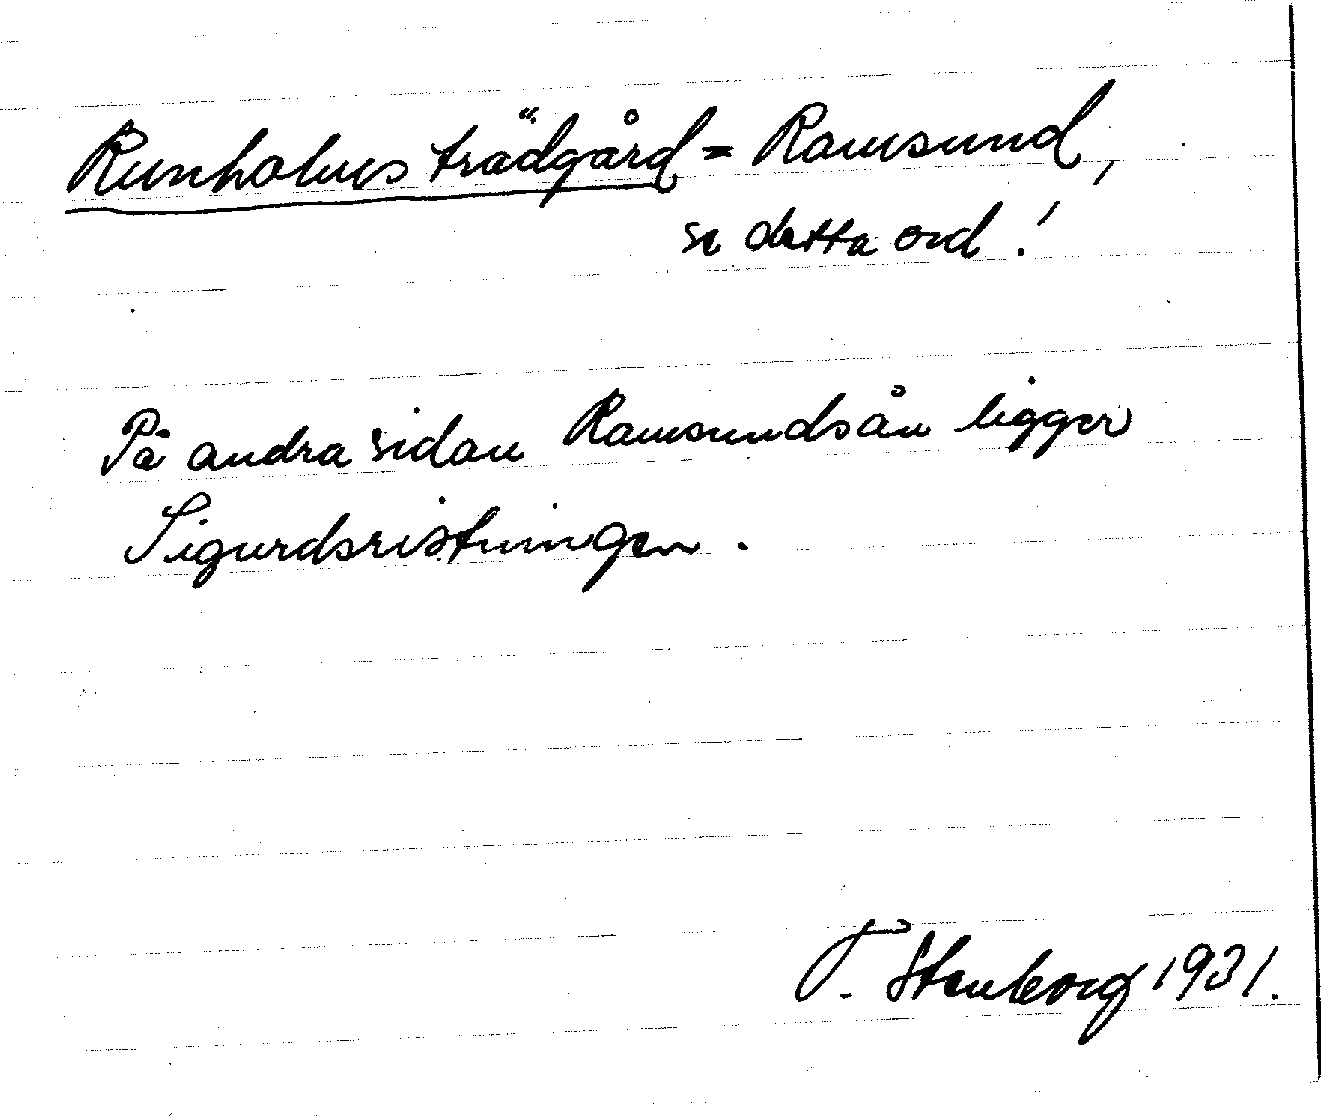 Runholms trädgård = Ramsund,
se detta ord!
På andra sidan Ramsundsån ligger
Sigurdsristningen.
T. Stenborg 1931.